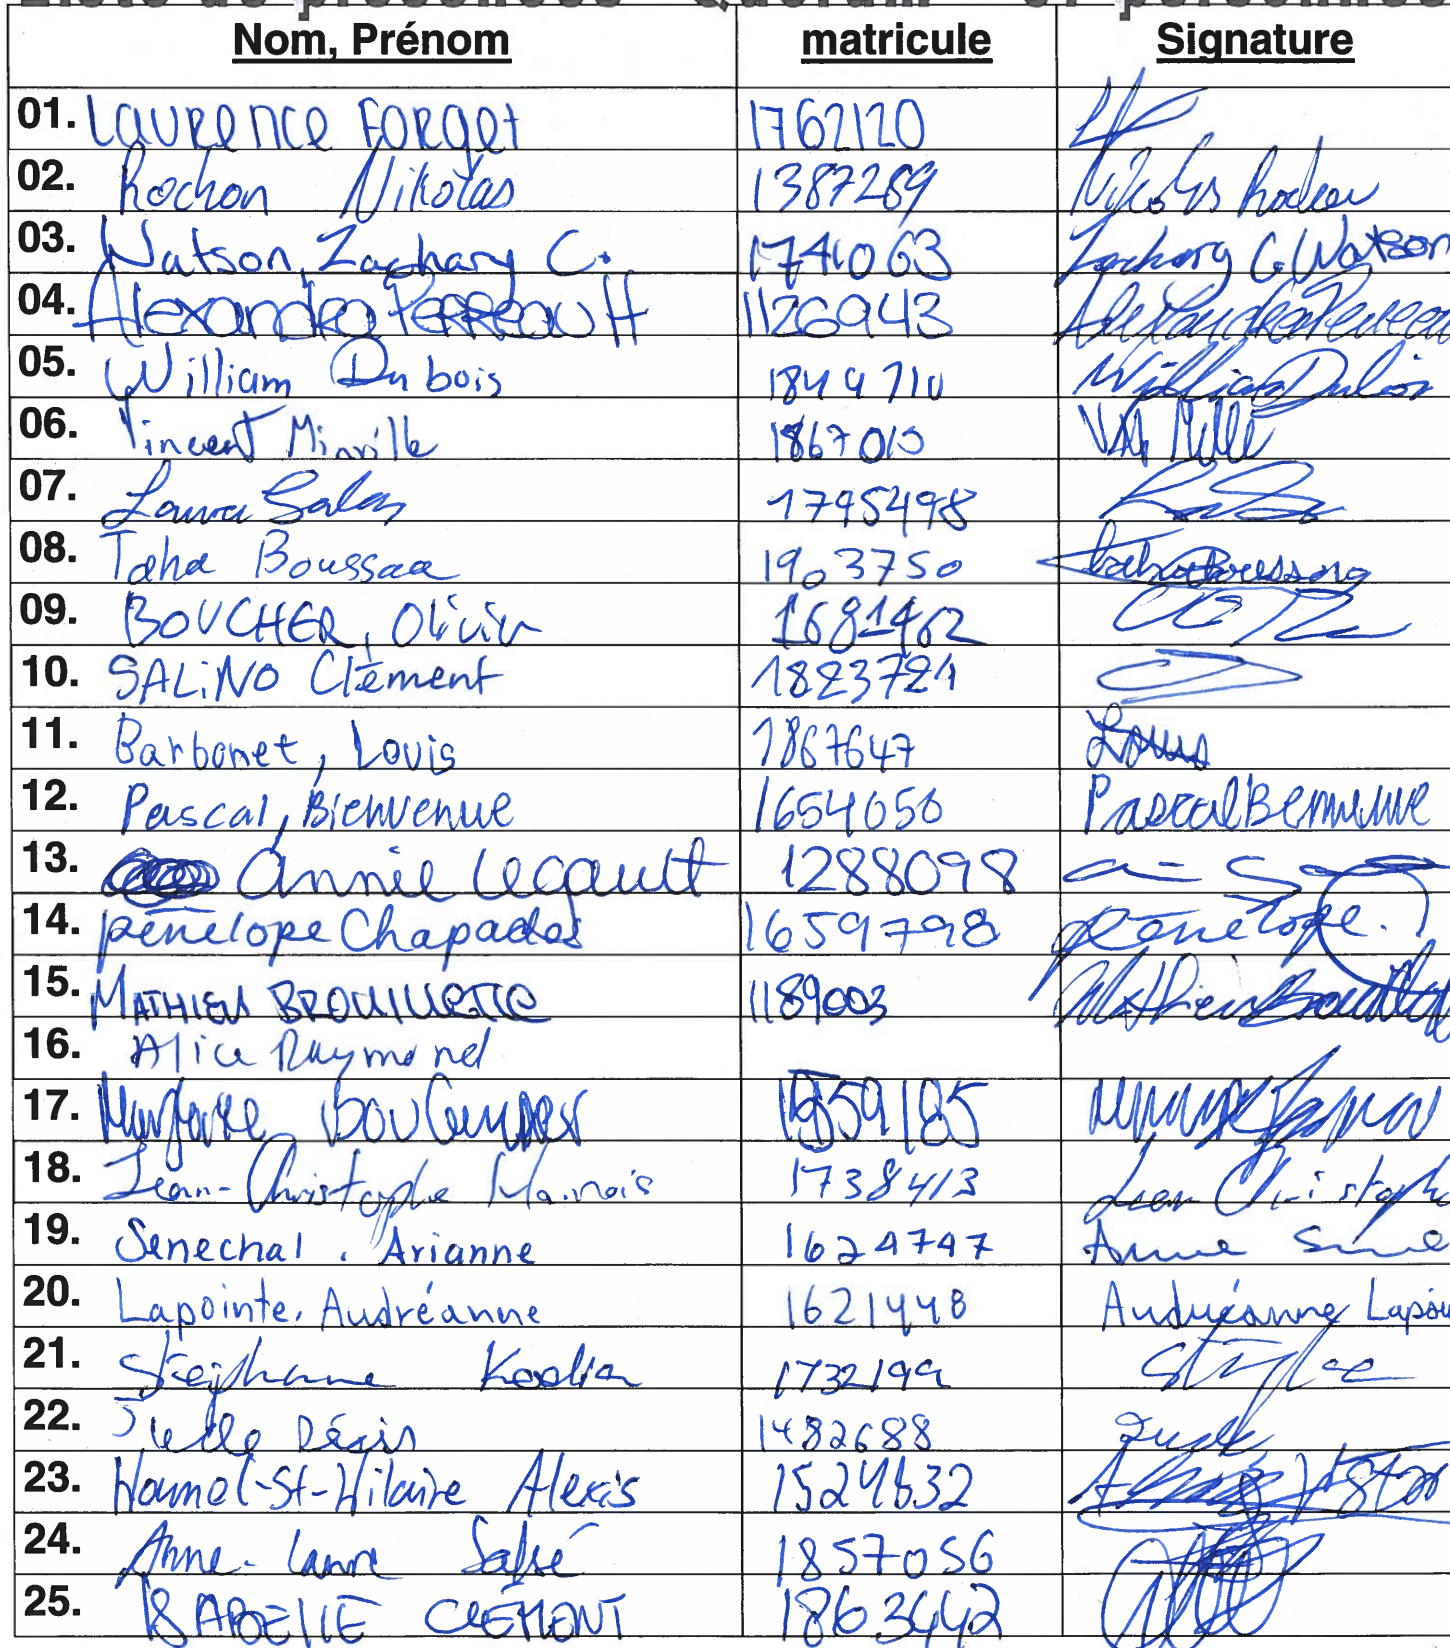 Liste de présences Quorum personnes
Nom, Prénom matricule Signature
01. Laurence Forget 1762120
02. Rochon Nikolas 1387289 Nikolas Rochon
03. Watson, Zachary C. 1741063 Zachary C. Watson
04. Alexandra Perreault 1126943 Alexandra Perreau
05. William Dubois 1849710 William Dubois
06. Vincent Minville 1867010
07. Laura Salas 1795498
08. Taha Boussaa 1903750 Taha Boussaa
09. BOUCHER, Olivier 1681462
10. SALiNO Clément 1823721
11. Barbonet, Louis 1867647 Louis
12. Pascal, Bienvenue 1654050 Pascal Bienvenue
13. Annie Legault 1288098
14. pénélope Chapados 1659798 Pénélope.
15. MATHIEU BROUILLETTE 1189003 Mathieu Brouillet
16. Alice Raymond
17. 1859185
18. Jean-Christophe 1738413 Jean Christophe
19. Senechal, Arianne 1624747
20. Lapointe, Audréanne 1621448 Audréanne Lapoin
21. Stephane 1732199
22. 1482688
23. Hamel-St-Hilaire Alexis 1524632
24. Anne-Laure Salsé 1857056
25. ISABELLE CLÉMENT 1863442